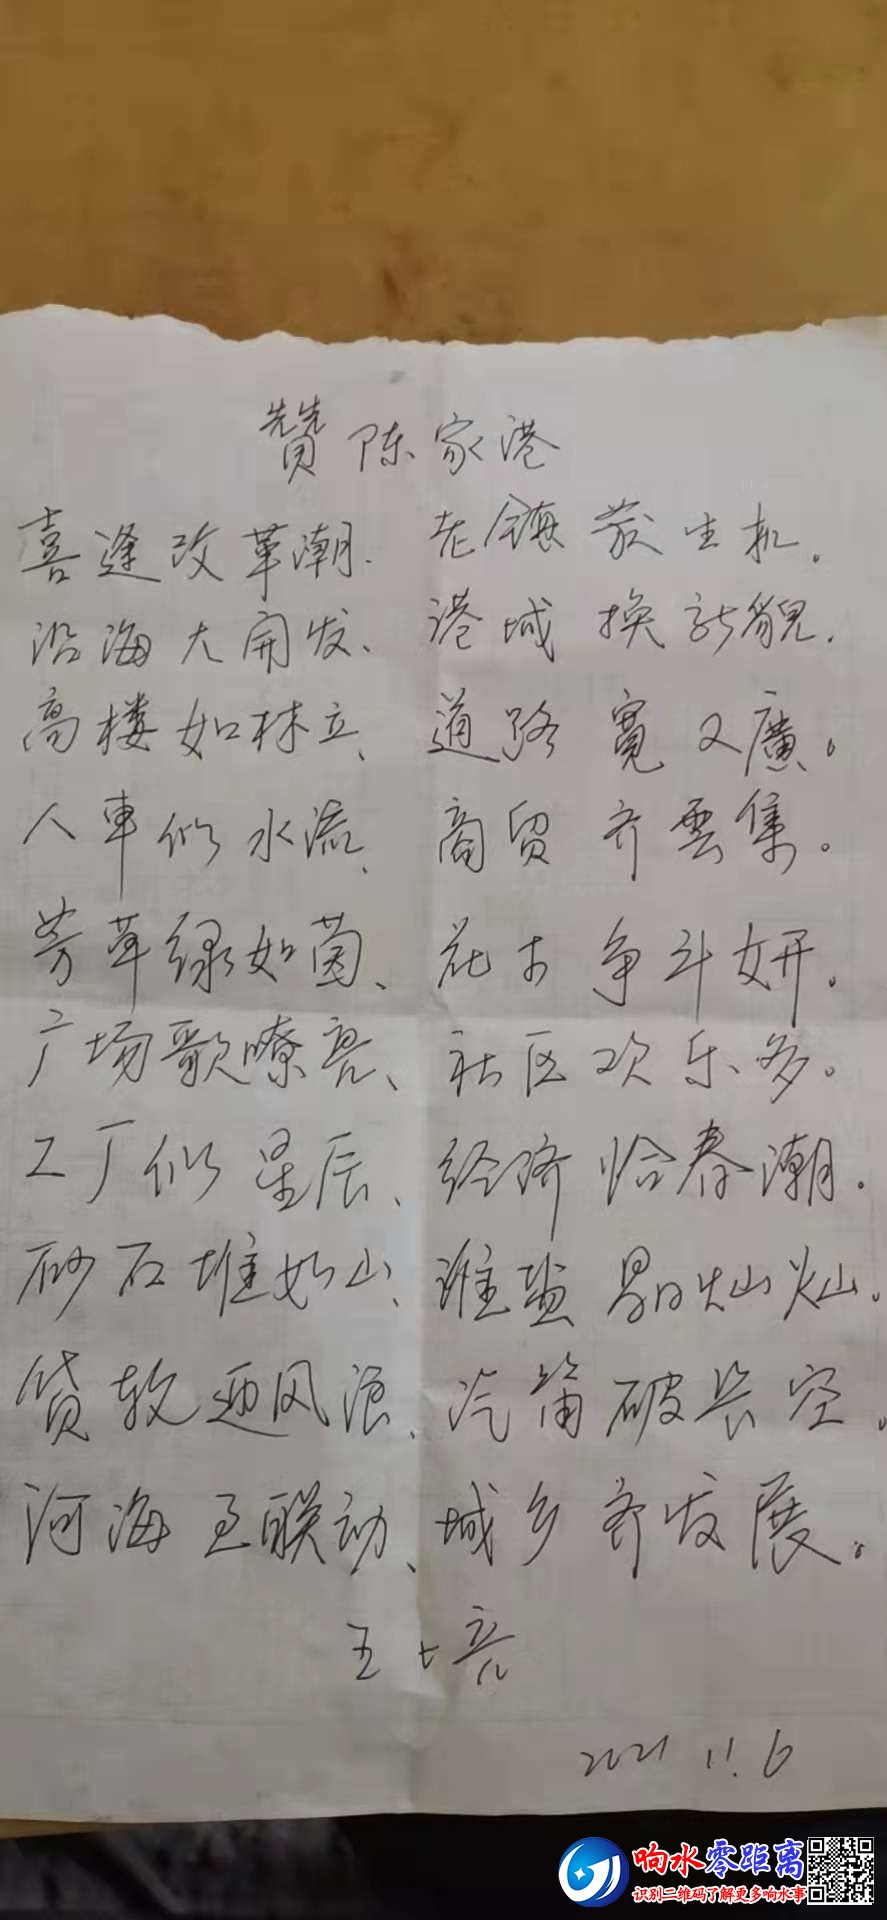 贊陈家港
喜逢改革潮. 老镇发生机.
沿海大开发、港城换新貌.
高楼如林立、道路寬又廣。
人車似水流、商贸齐雲集。
芳草绿如茵、花木争斗妍.
广场歌嘹亮、社区欢乐多。
工厂似星辰、经济恰春潮.
砂石堆如山、滩盐晶灿灿。
货轮迎风浪、汽笛破长空。
河海互联动、城乡齐发展。
王
2021 11.6
响水零距离
识别二维码了解更多响水事